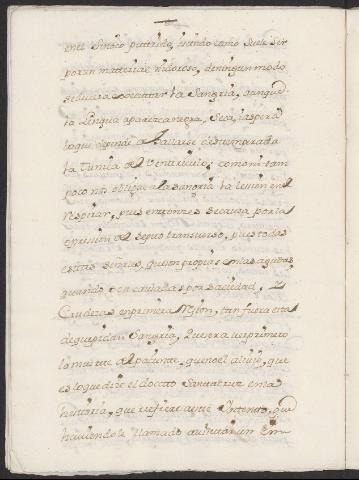 en el Sinoco putrido, siendo como suele ser
por una materia nidorosa, de ningun modo
se devera executar la Sangria, aunque
la Lengua aparezca negra, seca, i aspera
lo que depende de hallarse destemperada
la tunica del Ventriculo; como ni tam
poco nos obligue a la sangria la lesion en el
respirar, pues entonzes se causa por la
opresion del septo transverso, pues todas
estas señales, quson propias en las agudas,
quando son causadas por saciedad, y
Crudezas en primera Rejion, tan fuera esta
de que pidan Sangria, que sera ver primero
la muerte del paciente, que no el alivio, que
es lo que dice el docto Santa Cruz en la
historia, que refiere a este Yntento, que
haviendole llamado a visitar un Em